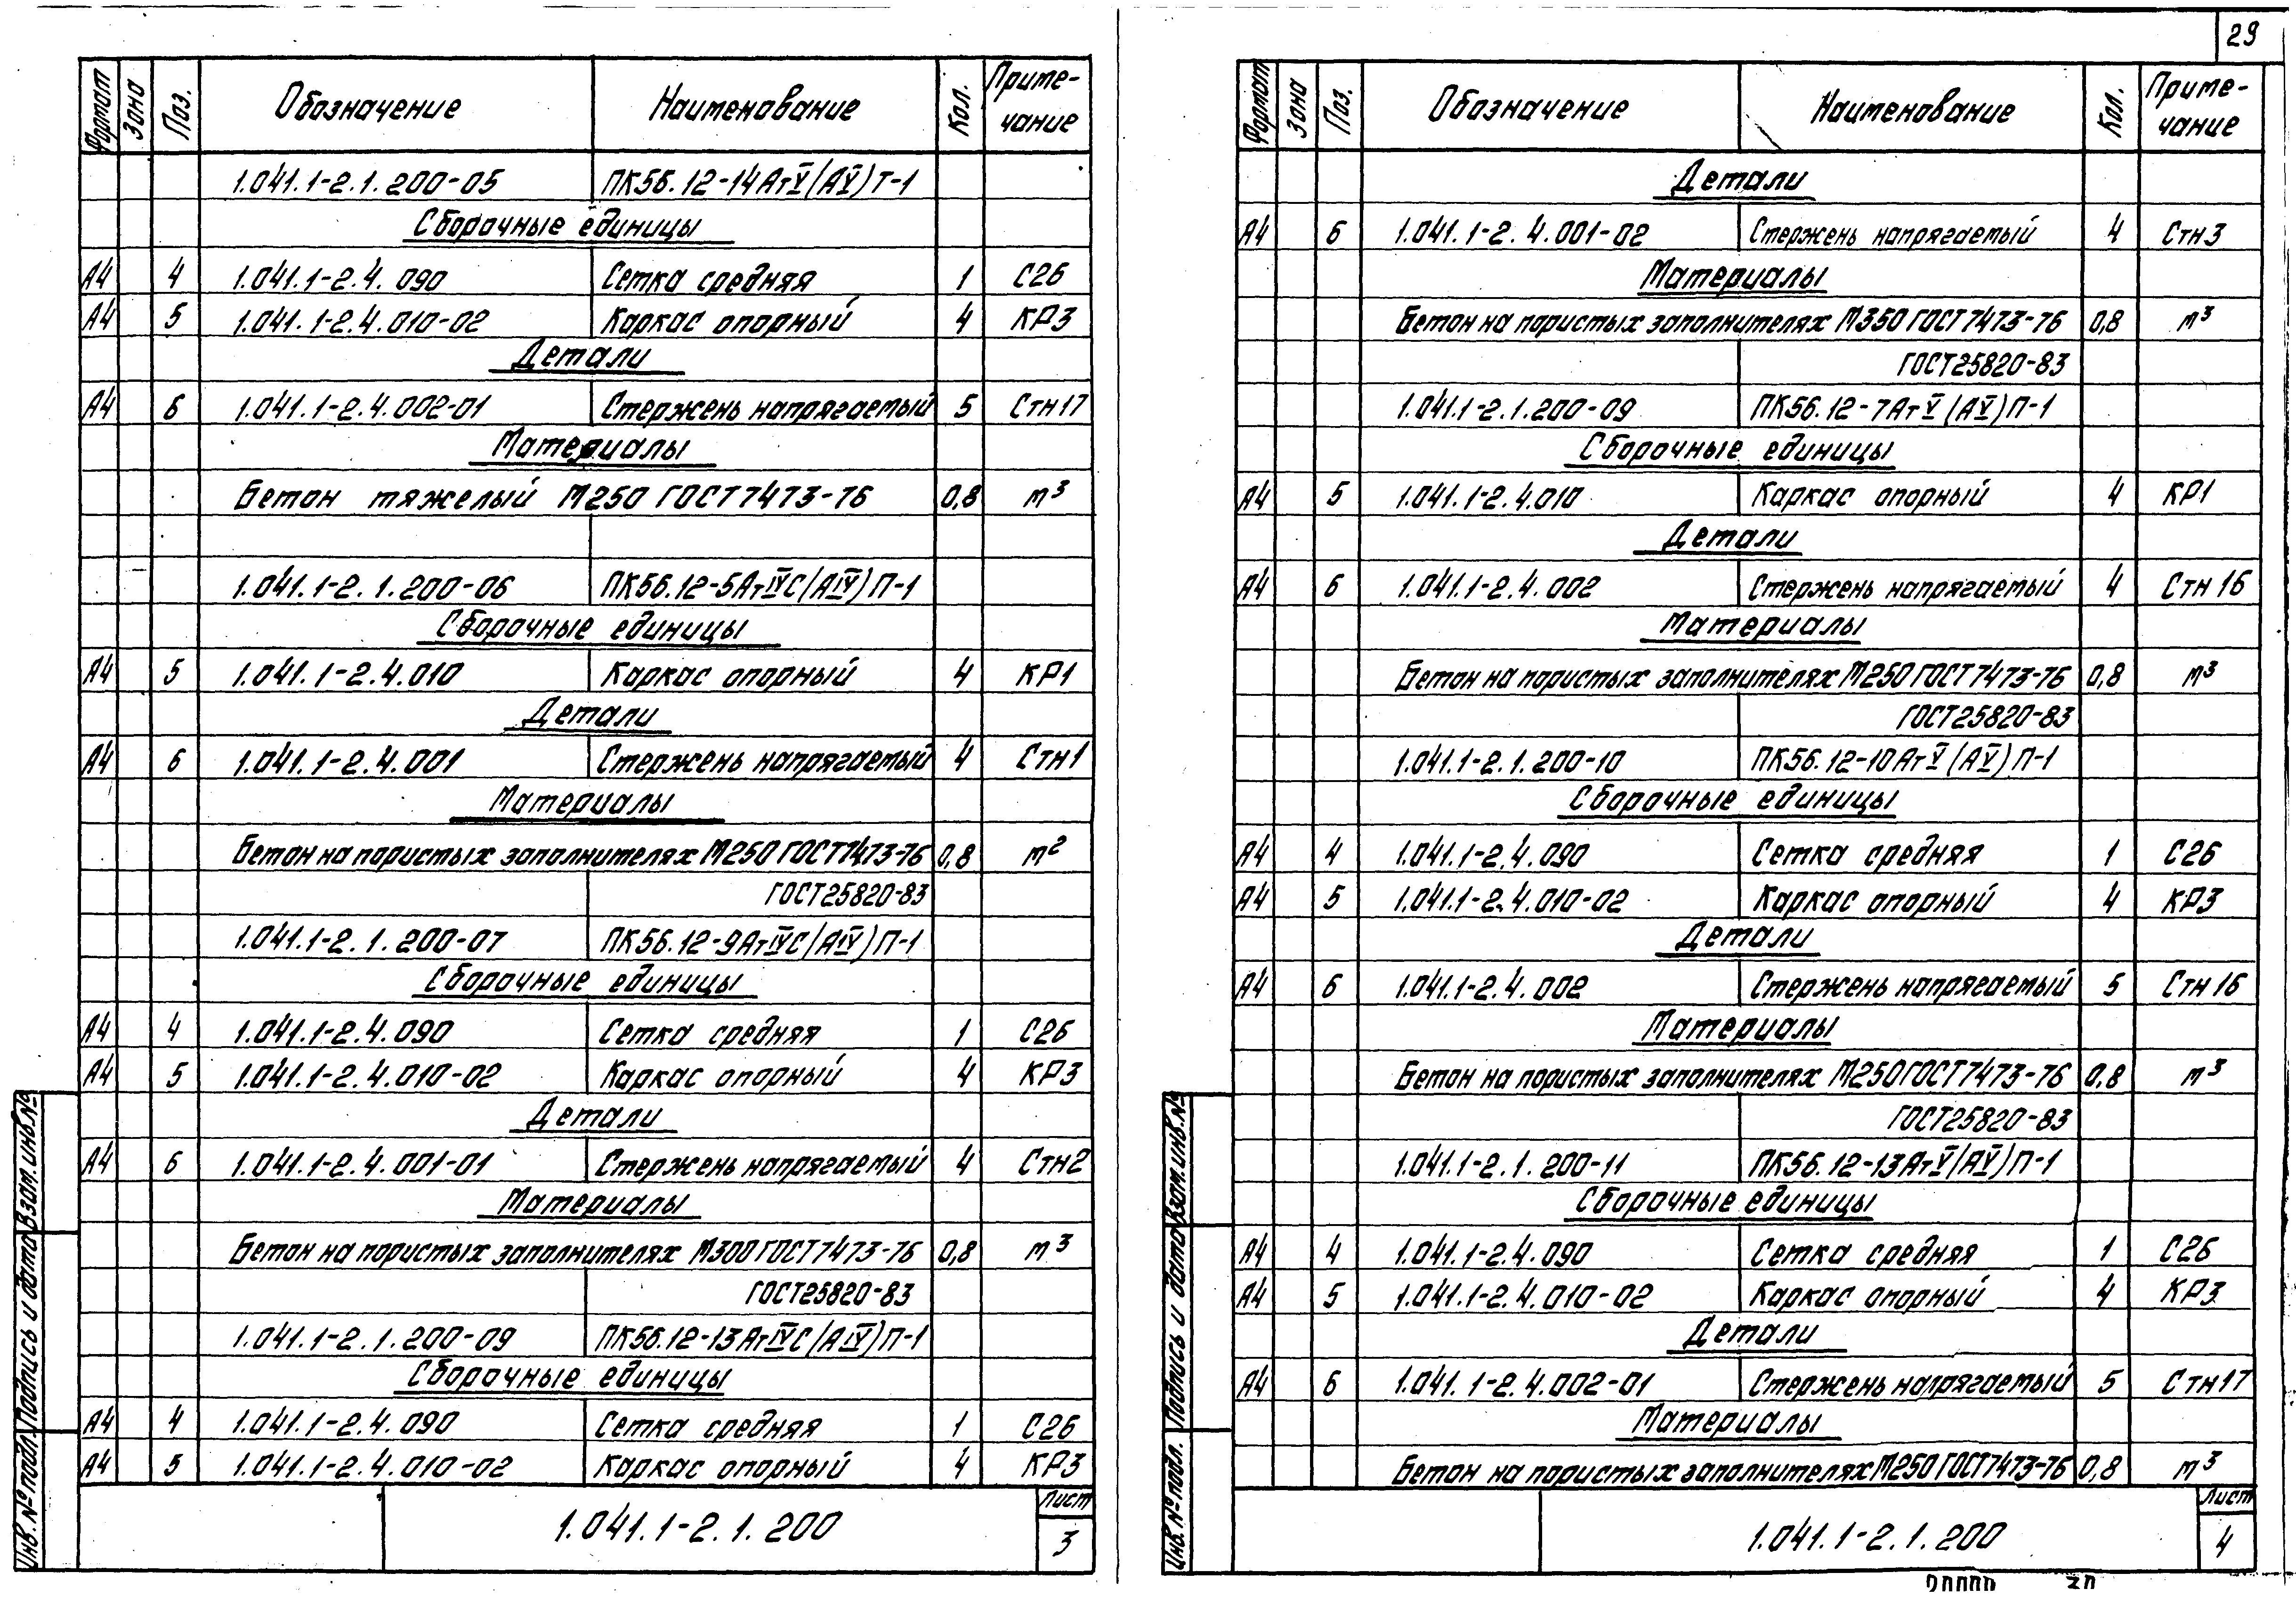 29
Формат Зона Поз. Обозначение Наименование Кол. Приме-
чание
1.041.1-2.1.200-05 ПК56.12-14АтV(АV)Т-1
Сборочные единицы
А4 4 1.041.1-2.4.090 Сетка средняя 1 С26
А4 5 1.041.1-2.4.010-02 Каркас опорный 4 КР3
Детали
А4 6 1.041.1-2.4.002-01 Стержень напрягаемый 5 Стн17
Материалы
Бетон тяжелый М250 ГОСТ7473-76 0,8 м³
1.041.1-2.1.200-06 ПК56.12-5АтIVС(АIV)П-1
Сборочные единицы
А4 5 1.041.1-2.4.010 Каркас опорный 4 КР1
Детали
А4 6 1.041.1-2.4.001 Стержень напрягаемый 4 Стн1
Материалы
Бетон на пористых заполнителях М250 ГОСТ7473-76 0,8 м²
ГОСТ25820-83
1.041.1-2.1.200-07 ПК56.12-9АтIVС(АIV)П-1
Сборочные единицы
А4 4 1.041.1-2.4.090 Сетка средняя 1 С26
А4 5 1.041.1-2.4.010-02 Каркас опорный 4 КР3
Детали
А4 6 1.041.1-2.4.001-01 Стержень напрягаемый 4 Стн2
Материалы
Бетон на пористых заполнителях М300 ГОСТ7473-76 0,8 м³
ГОСТ25820-83
1.041.1-2.1.200-09 ПК56.12-13АтIVС(АIV)П-1
Сборочные единицы
А4 4 1.041.1-2.4.090 Сетка средняя 1 С26
А4 5 1.041.1-2.4.010-02 Каркас опорный 4 КР3
1.041.1-2.1.200
Лист
3
Инв. № подл. Подпись и дата Взам. инв. №
Формат Зона Поз. Обозначение Наименование Кол. Приме-
чание
Детали
А4 6 1.041.1-2.4.001-02 Стержень напрягаемый 4 Стн3
Материалы
Бетон на пористых заполнителях М350 ГОСТ7473-76 0,8 м³
ГОСТ25820-83
1.041.1-2.1.200-09 ПК56.12-7АтV(АV)П-1
Сборочные единицы
А4 5 1.041.1-2.4.010 Каркас опорный 4 КР1
Детали
А4 6 1.041.1-2.4.002 Стержень напрягаемый 4 Стн16
Материалы
Бетон на пористых заполнителях М250 ГОСТ7473-76 0,8 м³
ГОСТ25820-83
1.041.1-2.1.200-10 ПК56.12-10АтV(АV)П-1
Сборочные единицы
А4 4 1.041.1-2.4.090 Сетка средняя 1 С26
А4 5 1.041.1-2.4.010-02 Каркас опорный 4 КР3
Детали
А4 6 1.041.1-2.4.002 Стержень напрягаемый 5 Стн16
Материалы
Бетон на пористых заполнителях М250 ГОСТ7473-76 0,8 м³
ГОСТ25820-83
1.041.1-2.1.200-11 ПК56.12-13АтV(АV)П-1
Сборочные единицы
А4 4 1.041.1-2.4.090 Сетка средняя 1 С26
А4 5 1.041.1-2.4.010-02 Каркас опорный 4 КР3
Детали
А4 6 1.041.1-2.4.002-01 Стержень напрягаемый 5 Стн17
Материалы
Бетон на пористых заполнителях М250 ГОСТ7473-76 0,8 м³
1.041.1-2.1.200
Лист
4
Инв. № подл. Подпись и дата Взам. инв. №